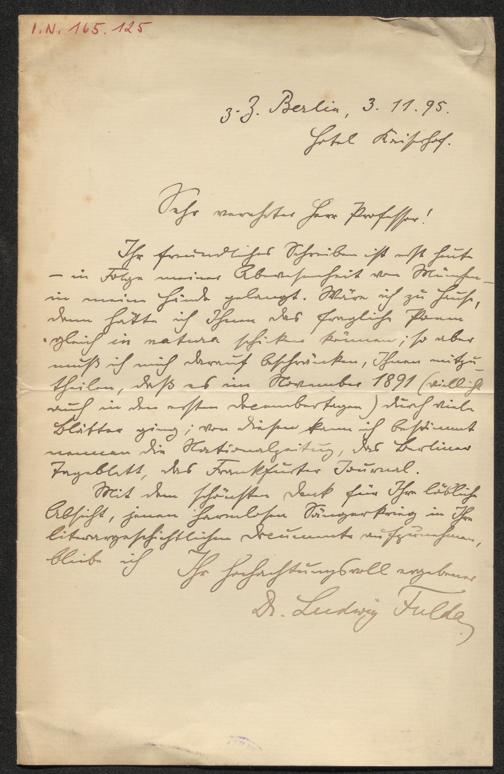 I.N. 165.125
z. Z. Berlin, 3. 11. 95.
Hotel Kaiserhof.
Sehr verehrter Herr Professor!
Ihr freundliches Schreiben ist erst heute
– in Folge meiner Abwesenheit von München –
in meine Hände gelangt. Wäre ich zu Hause,
dann hätte ich Ihnen das fragliche Poem
gleich in natura schicken können; so aber
muß ich mich darauf beschränken, Ihnen mitzu-
theilen, daß es im November 1891 (vielleicht
auch in den ersten Decembertagen) durch viele
Blätter ging; von diesen kann ich bestimmt
nennen die Nationalzeitung, das Berliner
Tageblatt, das Frankfurter Journal.
Mit dem schönsten Dank für Ihre löbliche
Absicht, jenen harmlosen Sängerkrieg in Ihre
literargeschichtlichen Documente aufzunehmen,
bleibe ich Ihr hochachtungsvoll ergebener
Dr. Ludwig Fulda